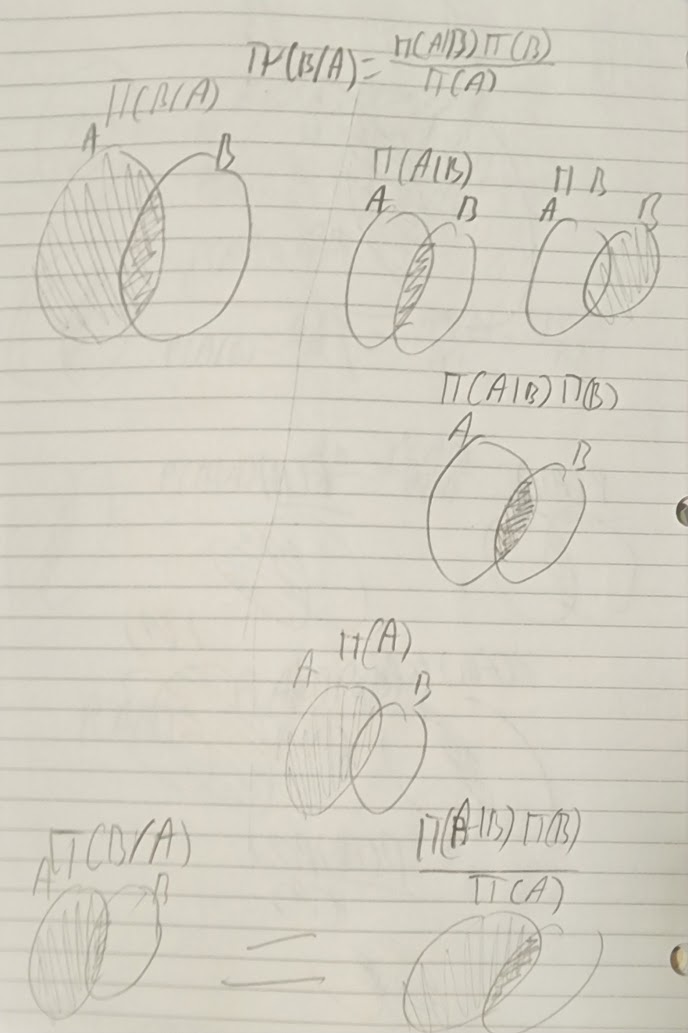 Π(B/A) = Π(A|B) Π(B) / Π(A)
Π(B/A)
A
B
Π(A|B)
A
B
Π B
A
B
Π(A|B) Π(B)
A
B
Π(A)
A
B
Π(B/A)
A
B
=
Π(A|B) Π(B)
Π(A)